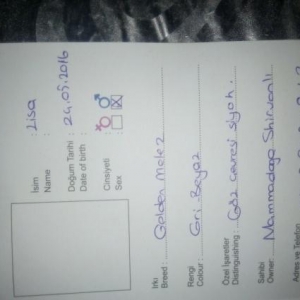 İsim : Lisa
Name
Doğum Tarihi : 24.05.2016
Date of birth
Cinsiyeti : ♀ ♂
Sex ☐ ☒
Irkı
Breed : Golden melez
Rengi
Colour : Gri-Beyaz
Özel İşaretler
Distinguishing : Göz çevresi siyah.
Sahibi
Owner: Mammadaga Shirvanli
Adres ve Telefon